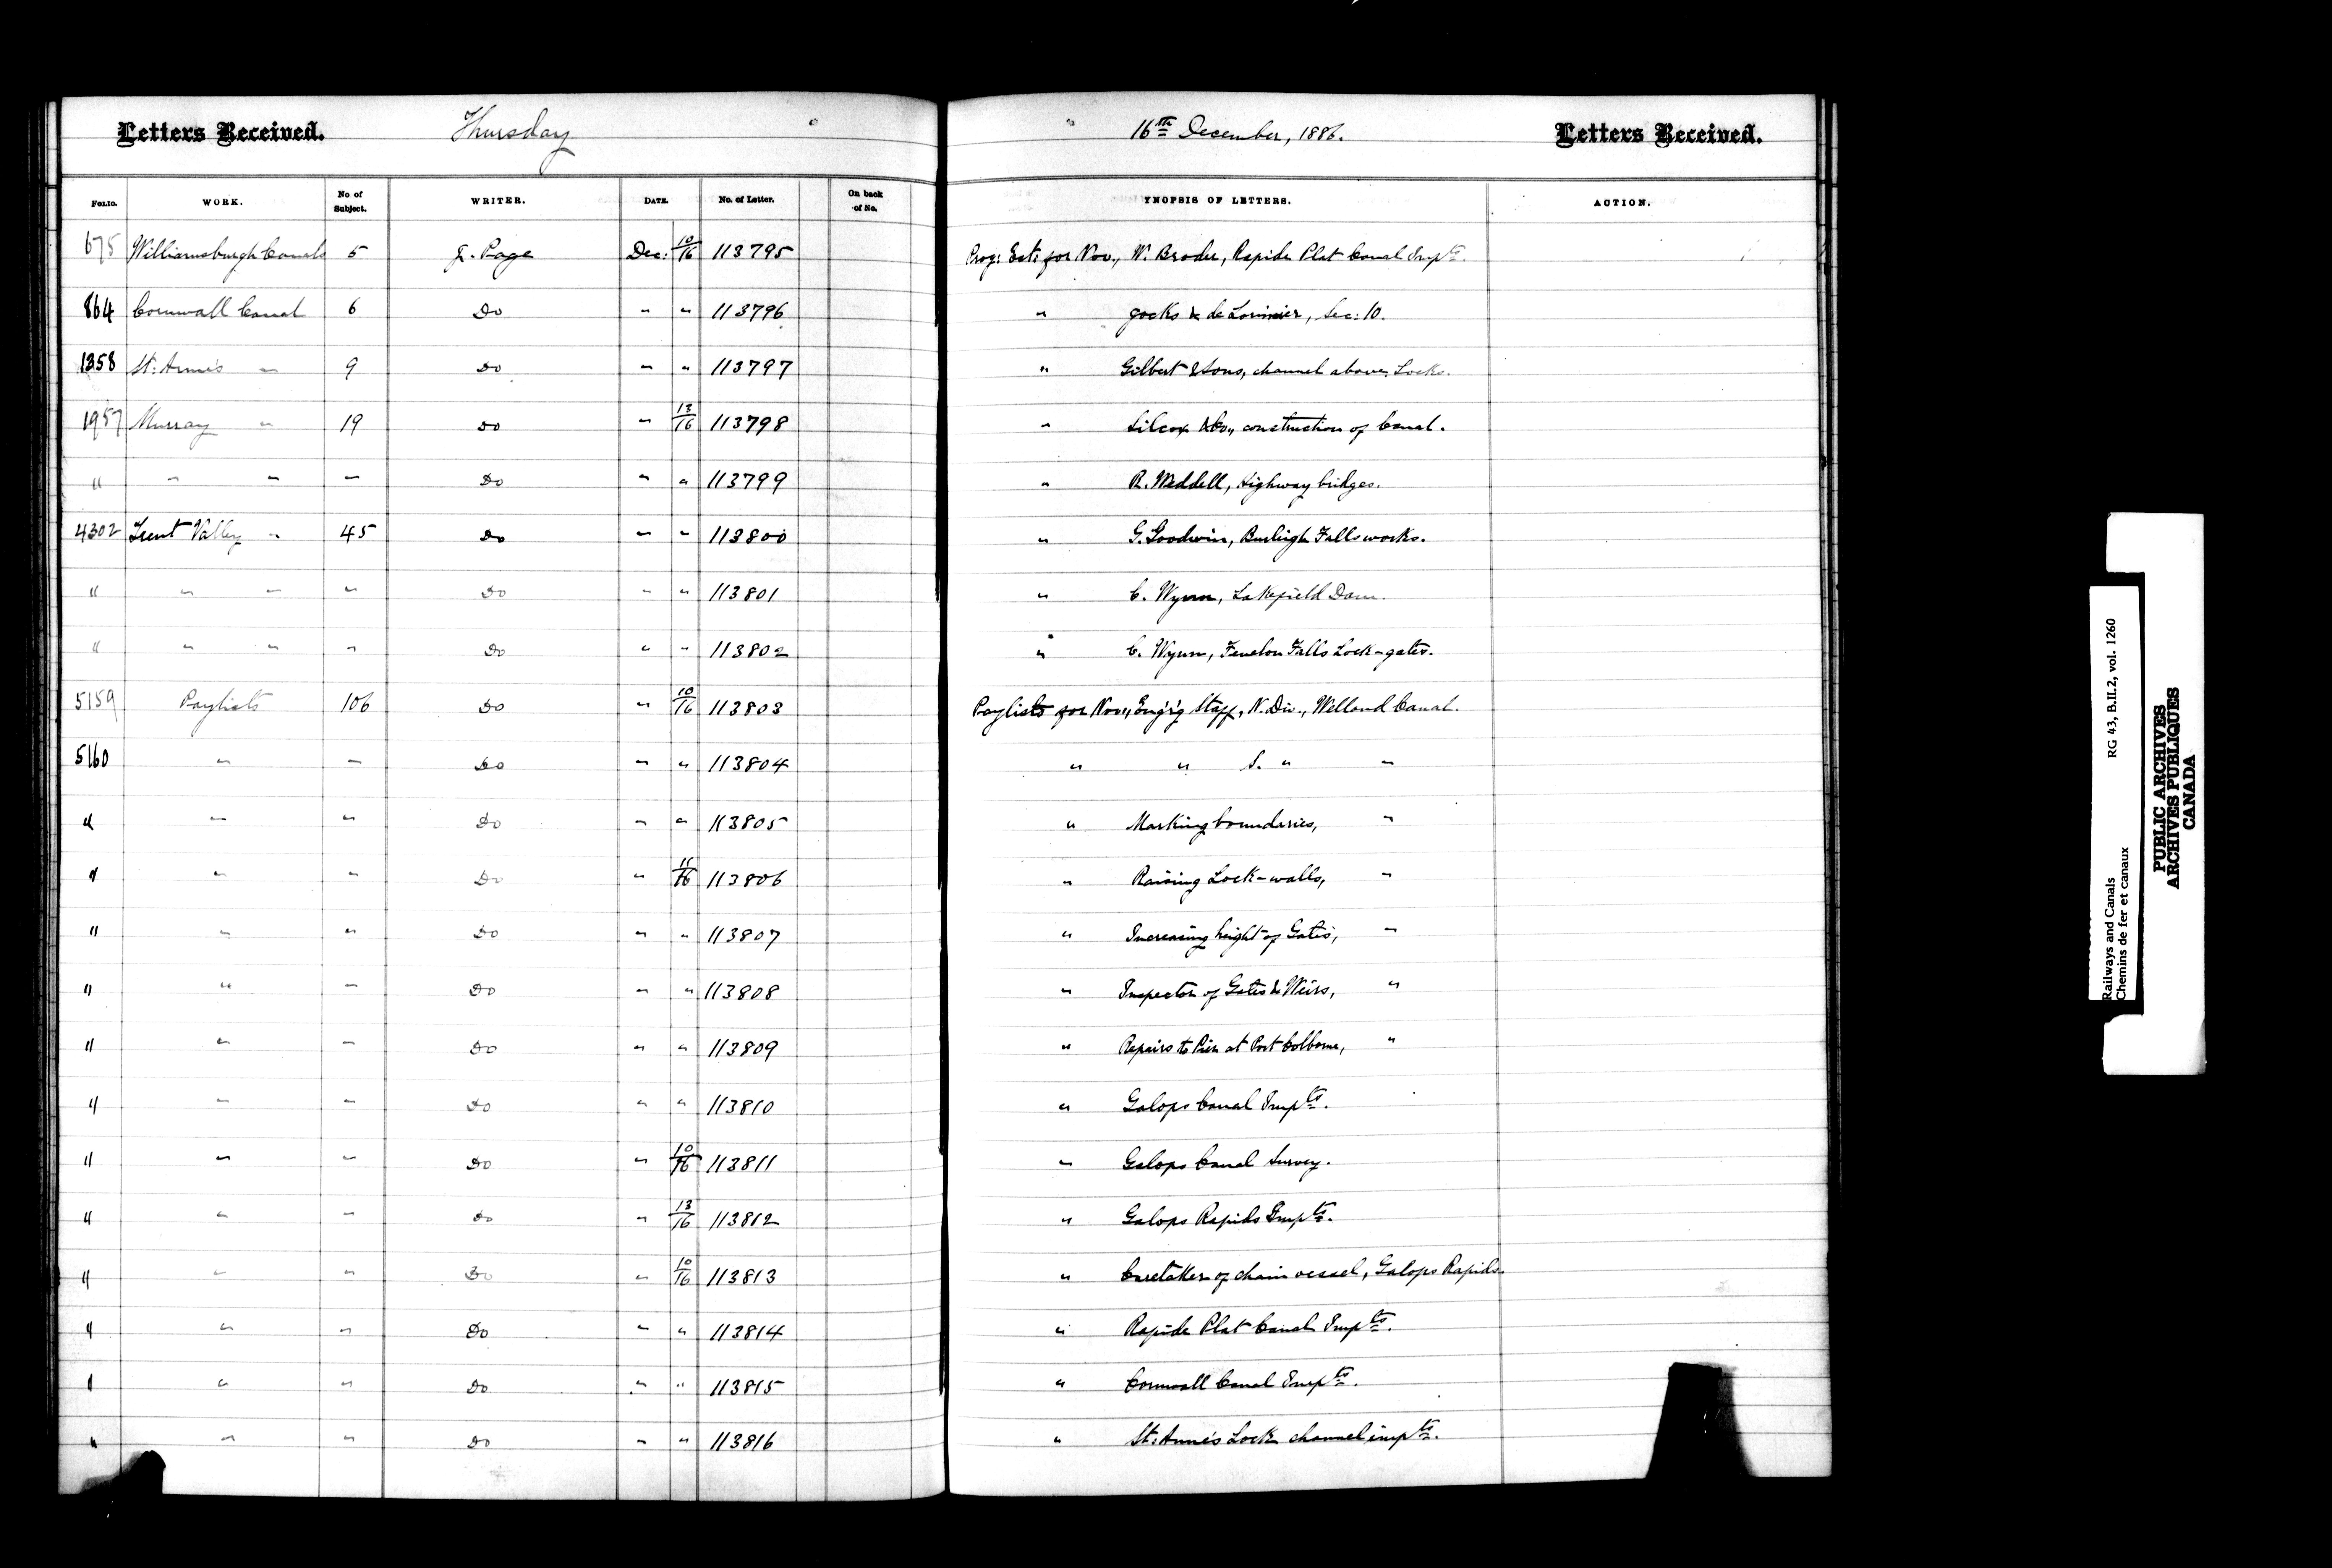 Letters Received. Thursday 16th December, 1886. Letters Received.
FOLIO. WORK. No of Subject. WRITER. DATE. No. of Letter. On back of No. SYNOPSIS OF LETTERS. ACTION.
675 Williamsburgh Canals 5 J. Page Dec: 10/16 113795 Prog: Est: for Nov., W. Broder, Rapide Plat Canal Impts.
864 Cornwall Canal 6 Do " " 113796 " Jocks & de Lorimier, Sec: 10.
1358 St. Anne's " 9 Do " " 113797 " Gilbert & Sons, channel above Locks.
1957 Murray " 19 Do " 13/16 113798 " Silcox & Co., construction of Canal.
" " " " Do " " 113799 " R. Weddell, Highway bridges.
4302 Trent Valley " 45 Do " " 113800 " G. Goodwin, Burleigh Falls works.
" " " " Do " " 113801 " C. Wynn, Lakefield Dam.
" " " " Do " " 113802 " C. Wynn, Fenelon Falls Lock-gates.
5159 Paylists 106 Do " 10/16 113803 Paylists for Nov., Eng'r'g Staff, N. Div., Welland Canal.
5160 " " Do " " 113804 " " S. " "
" " " Do " " 113805 " Marking boundaries, "
" " " Do " 11/16 113806 " Raising Lock-walls, "
" " " Do " " 113807 " Increasing height of Gates, "
" " " Do " " 113808 " Inspector of Gates & Weirs, "
" " " Do " " 113809 " Repairs to Pier at Port Colborne, "
" " " Do " " 113810 " Galops Canal Impts.
" " " Do " 10/16 113811 " Galops Canal Survey.
" " " Do " 13/16 113812 " Galops Rapids Impts.
" " " Do " 10/16 113813 " Caretaker of chain vessel, Galops Rapids.
" " " Do " " 113814 " Rapide Plat Canal Impts.
" " " Do " " 113815 " Cornwall Canal Impts.
" " " Do " " 113816 " St. Anne's Lock channel impts.
Railways and Canals RG 43, B.II.2, vol. 1260
Chemins de fer et canaux
PUBLIC ARCHIVES
ARCHIVES PUBLIQUES
CANADA